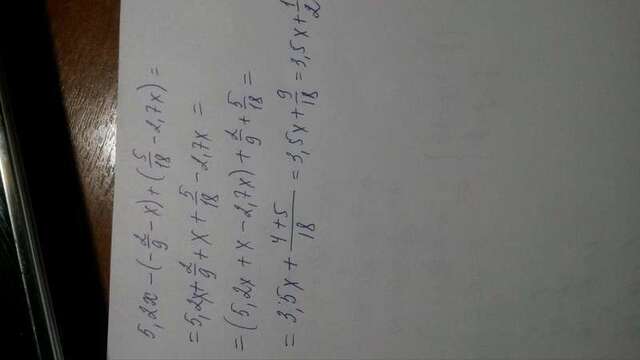 5,2x - (-2/9 - x) + (5/18 - 2,7x) =
= 5,2x + 2/9 + x + 5/18 - 2,7x =
= (5,2x + x - 2,7x) + 2/9 + 5/18 =
= 3,5x + (4+5)/18 = 3,5x + 9/18 = 3,5x + 1/2